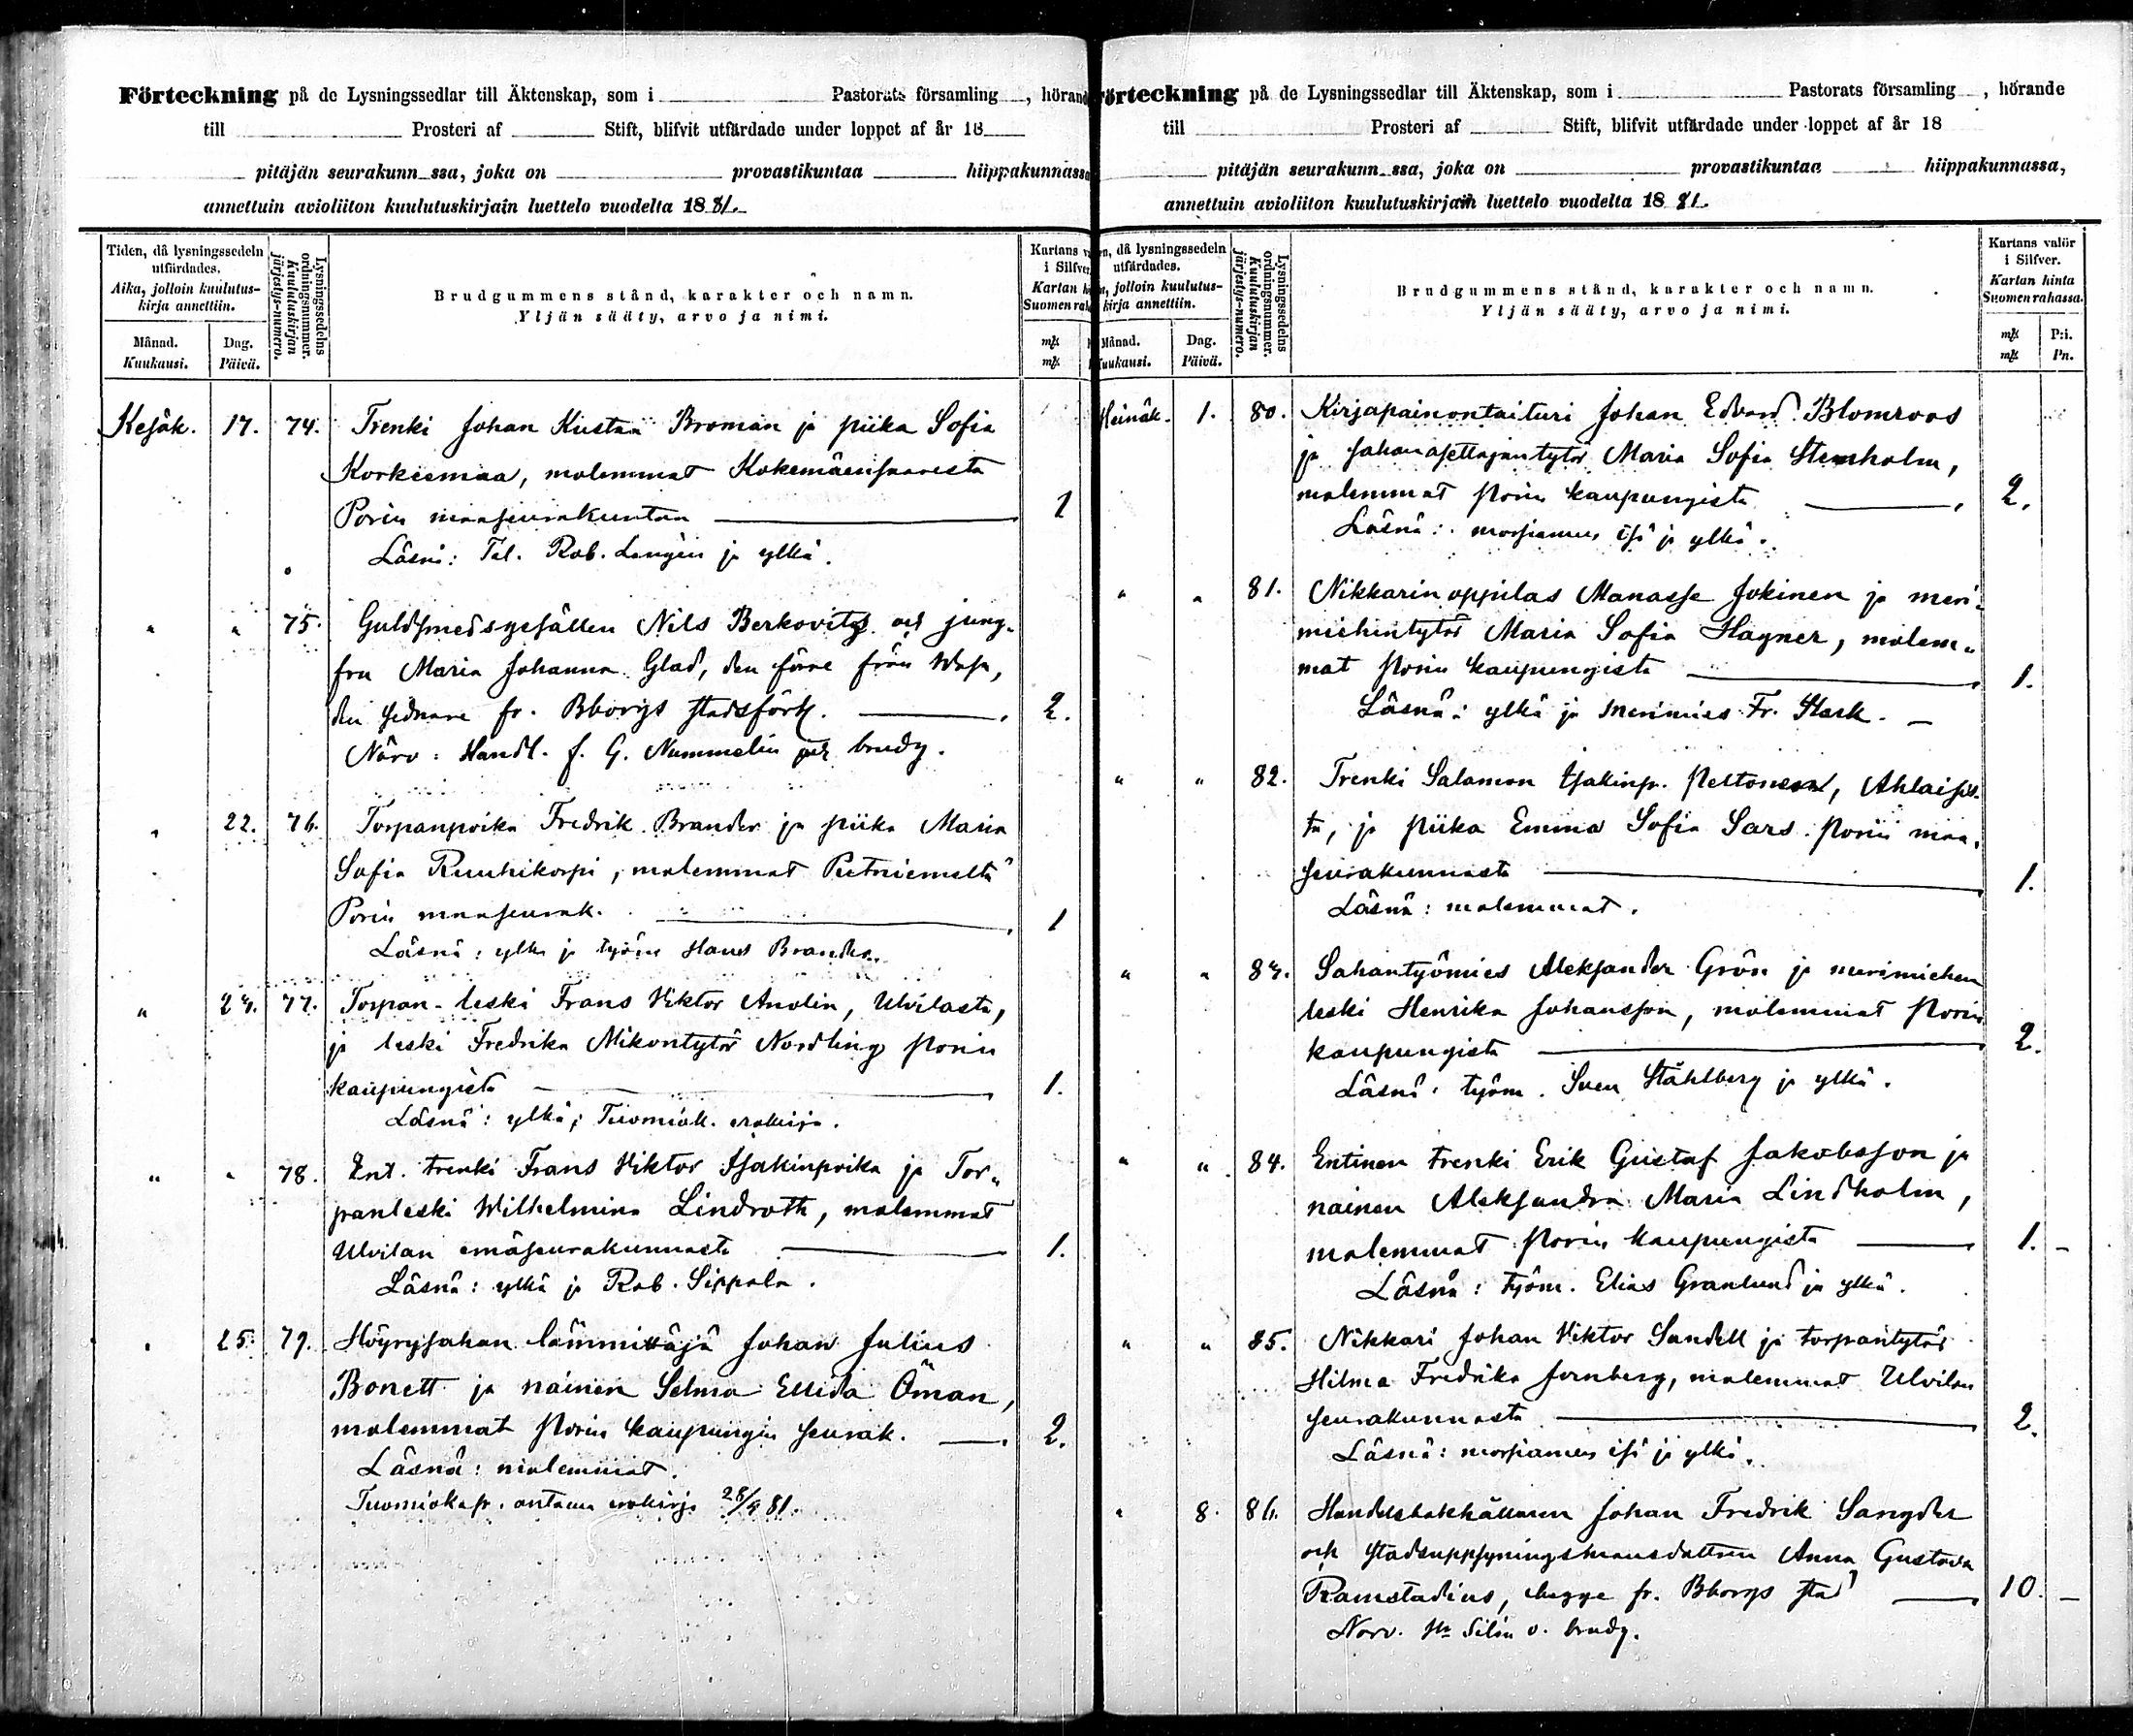 Förteckning på de Lysningssedlar till Äktenskap, som i Pastorats församling , hörande
till Prosteri af Stift, blifvit utfärdade under loppet af år 18
pitäjän seurakunn ssa, joka on provastikuntaa hiippakunnassa
annettuin avioliiton kuulutuskirjain luettelo vuodelta 18 81.
Tiden, då lysningssedeln
utfärdades.
Aika, jolloin kuulutus-
kirja annettiin.
Månad.
Kuukausi.
Dag.
Päivä.
Lysningssedelns
ordningsnummer.
Kuulutuskirjan
järjestys-numero.
Brudgummens stånd, karakter och namn.
Yljän sääty, arvo ja nimi.
Kartans
i Silfver
Kartan
Suomen
mk
mk
Kesäk. 17. 74. Trenki Johan Kustaa Broman ja piika Sofia
Korkeemaa, molemmat Kokemäensaaresta
Porin maaseurakuntaa 1
Läsnä: Tal. Rob. ja ylkä.
" " 75. Guldsmedsgesällen Nils Berkovitz och jung-
fru Maria Johanna Glad, den förre från Wasa,
den sednare fr. Bborgs stadsförs. 2.
Närv: Handl. J. G. Nummelin och brudg.
" 22. 76. Torpanpoika Fredrik Brander ja piika Maria
Sofia Ruuhikorpi, molemmat
Porin maaseurak. 1
Läsnä: ylkä ja työm Brander.
" 77. Torpan-leski Frans Viktor Anolin, Ulvilasta,
ja leski Fredrika Mikontytär Nordling Porin
kaupungista 1.
Läsnä: ylkä; Tuomiok. erokirja.
" " 78. Ent. trenki Frans Viktor Isakinpoika ja Tor-
panleski Wilhelmina Lindroth, molemmat
Ulvilan emäseurakunnasta 1.
Läsnä: ylkä ja Rob. Sippola.
" 25. 79. Höyrysahan lämmittäjä Johan Julius
Bonett ja nainen Selma Ellida Öman,
molemmat Porin kaupungin seurak. 2.
Läsnä: molemmat.
antama erokirja 81.
Förteckning på de Lysningssedlar till Äktenskap, som i Pastorats församling , hörande
till Prosteri af Stift, blifvit utfärdade under loppet af år 18
pitäjän seurakunn ssa, joka on provastikuntaa hiippakunnassa,
annettuin avioliiton kuulutuskirjain luettelo vuodelta 18 81.
då lysningssedeln
utfärdades.
jolloin kuulutus-
kirja annettiin.
Månad.
Kuukausi.
Dag.
Päivä.
Lysningssedelns
ordningsnummer.
Kuulutuskirjan
järjestys-numero.
Brudgummens stånd, karakter och namn.
Yljän sääty, arvo ja nimi.
Kartans valör
i Silfver.
Kartan hinta
Suomen rahassa.
mk P:i.
mk Pn.
Heinäk. 1. 80. Kirjapainontaituri Johan Edvard Blomroos
ja sahanasettajantytär Maria Sofia Stenholm,
molemmat Porin kaupungista 2.
Läsnä: morsiamen isä ja ylkä.
" " 81. Nikkarin oppilas Manasse Jokinen ja meri-
miehentytär Maria Sofia Hagner, molem-
mat Porin kaupungista 1.
Läsnä: ylkä ja merimies Fr. Stark.
" " 82. Trenki Salamon Isakinp. Peltonen, Ahlaisis-
ta, ja piika Emma Sofia Sars Porin maa-
seurakunnasta 1.
Läsnä: molemmat.
" " 83. Sahantyömies Aleksander Grön ja merimiehen
leski Henrika Johansson, molemmat Porin
kaupungista 2.
Läsnä: työm. Sven Ståhlberg ja ylkä.
" " 84. Entinen trenki Erik Gustaf Jakobsson ja
nainen Aleksandra Maria Lindholm,
molemmat Porin kaupungista 1. -
Läsnä: työm. Elias Granlund ja ylkä.
" " 85. Nikkari Johan Viktor Sandell ja torpantytär
Hilma Fredrika Jernberg, molemmat Ulvilan
seurakunnasta 2.
Läsnä: morsiamen isä ja ylkä.
" 8. 86. Handelsbokhållaren Johan Fredrik
och Stadsuppsyningsmansdottren Anna Gustava
Ramstadius, begge fr. Bborgs stad 10. -
Närv. Silin o. brudg.